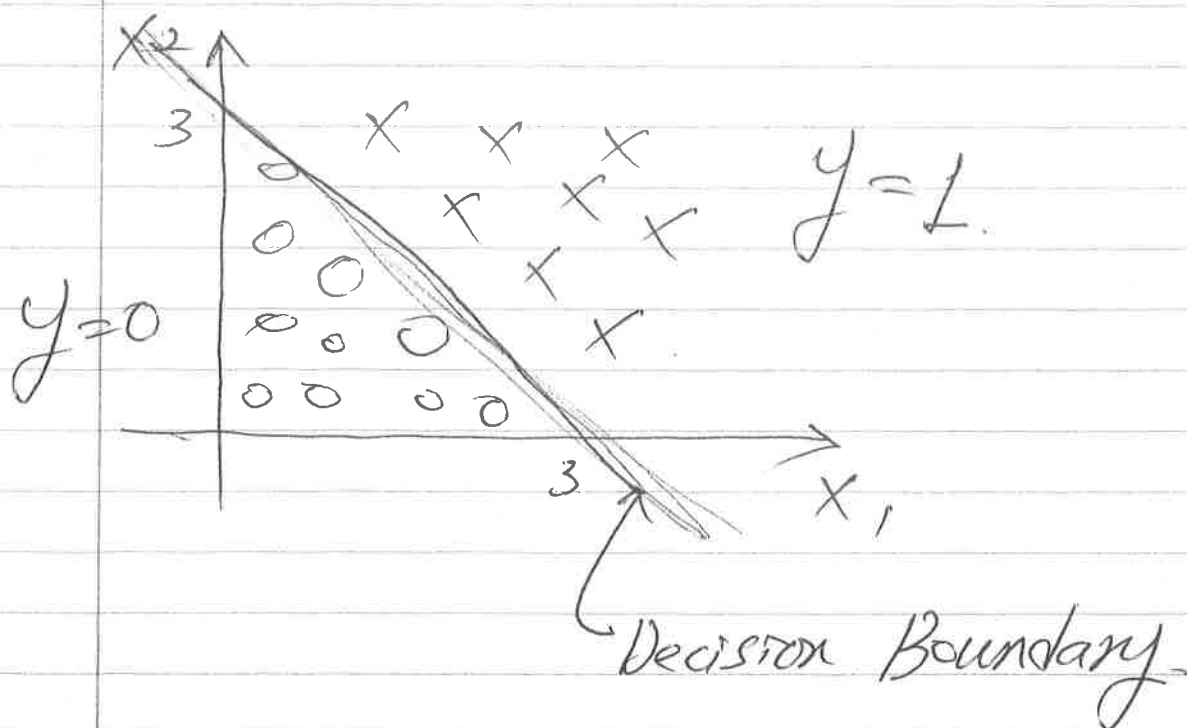 X2
3
y=1.
y=0
3
X1
Decision Boundary.